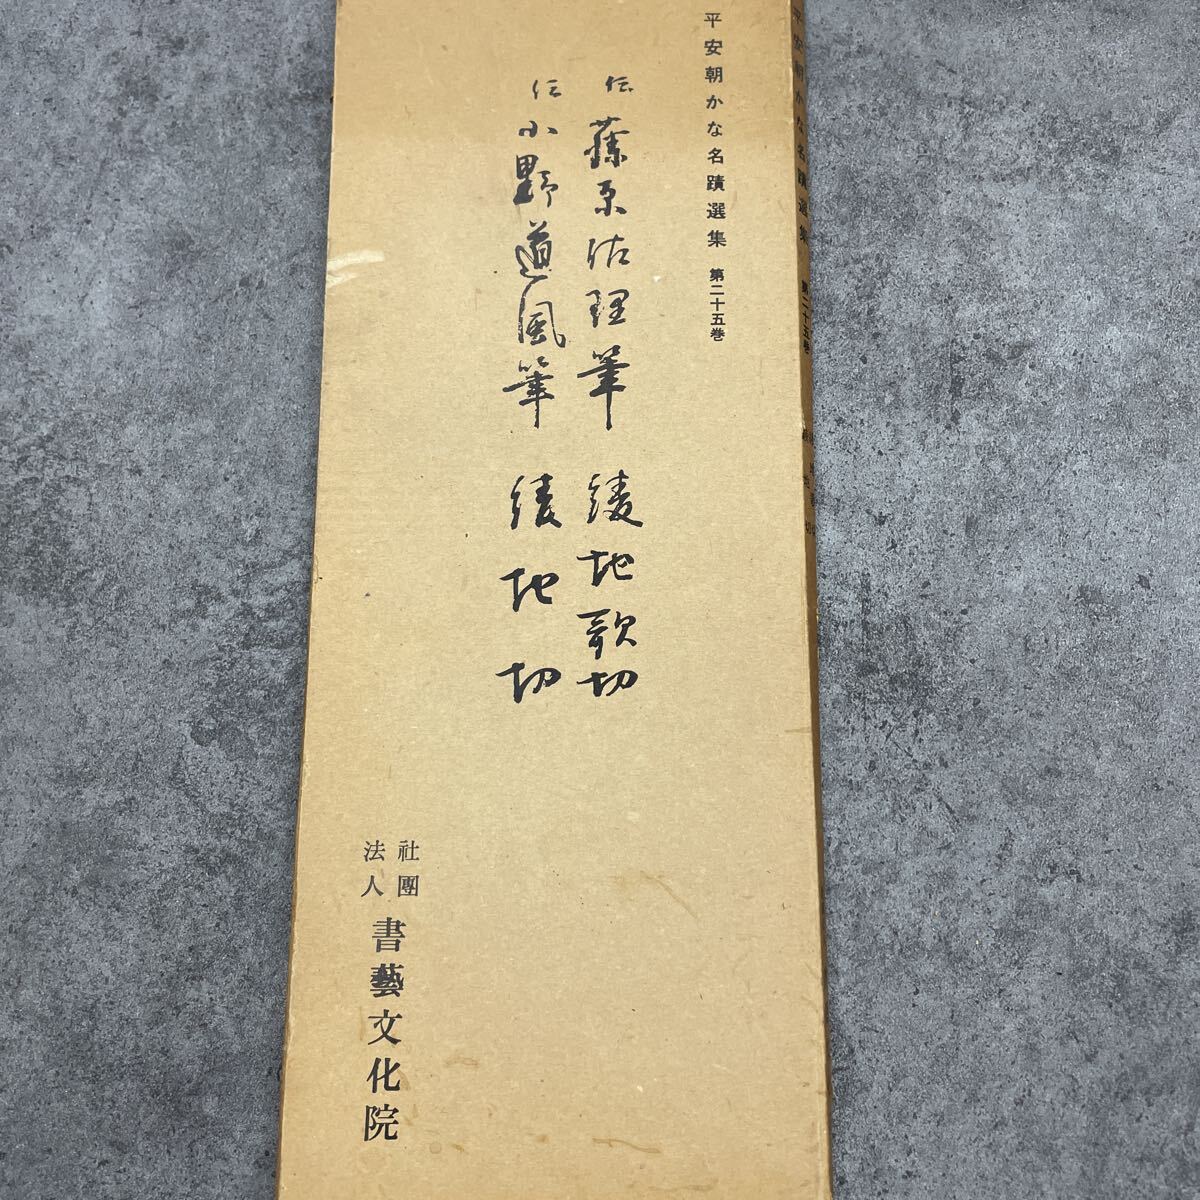 平安朝かな名蹟選集 第二十五巻
伝 藤原佐理筆 綾地歌切
伝 小野道風筆 綾地切
社團
法人
書藝文化院
平安朝かな名蹟選集 第二十五巻